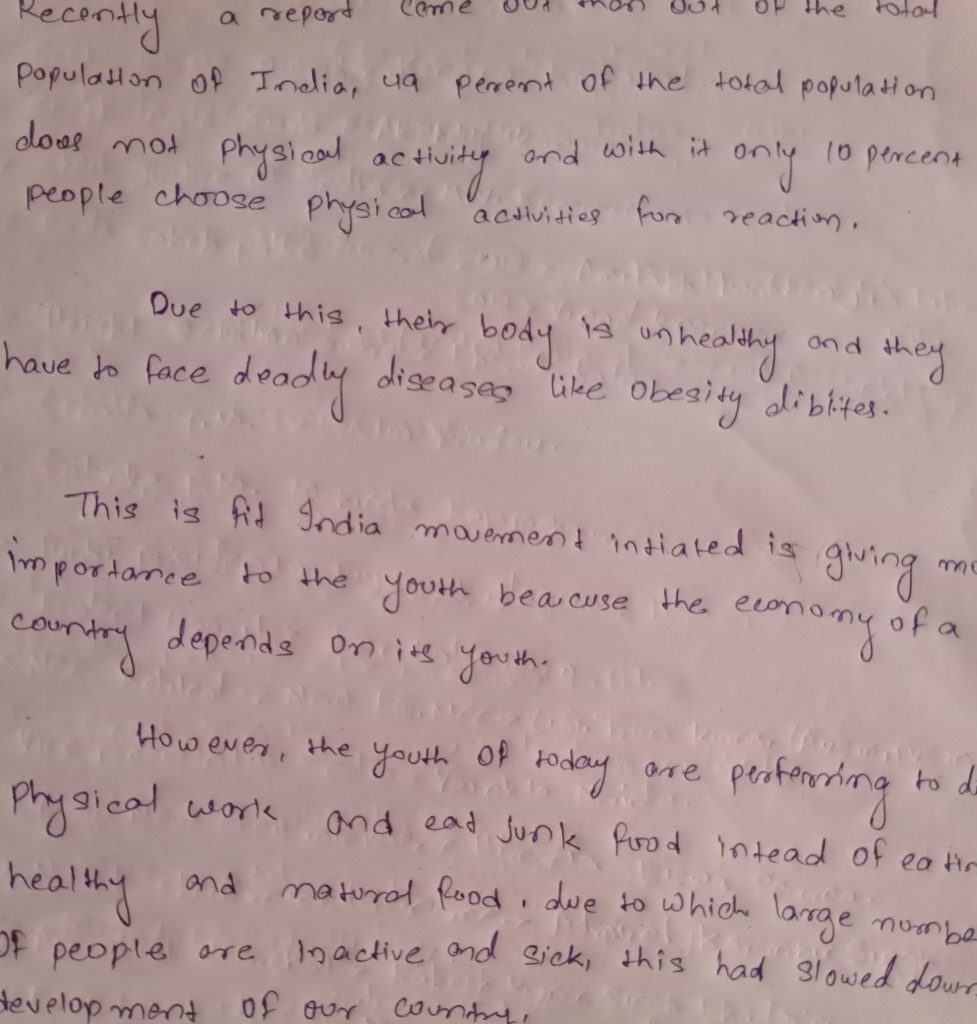 Recently a report come out than out of the total
population of India, 49 perent of the total population
does not physical activity and with it only 10 percent
people choose physical activities for reaction.
Due to this, their body is unhealthy and they
have to face deadly diseases like obesity diblites.
This is fit India movement intiated is giving mo
importance to the youth beacuse the economy of a
country depends on its youth.
However, the youth of today are perferring to d
physical work and eat junk food intead of eatin
healthy and natural food, due to which large numbe
of people are Inactive and sick, this had slowed down
development of our country.